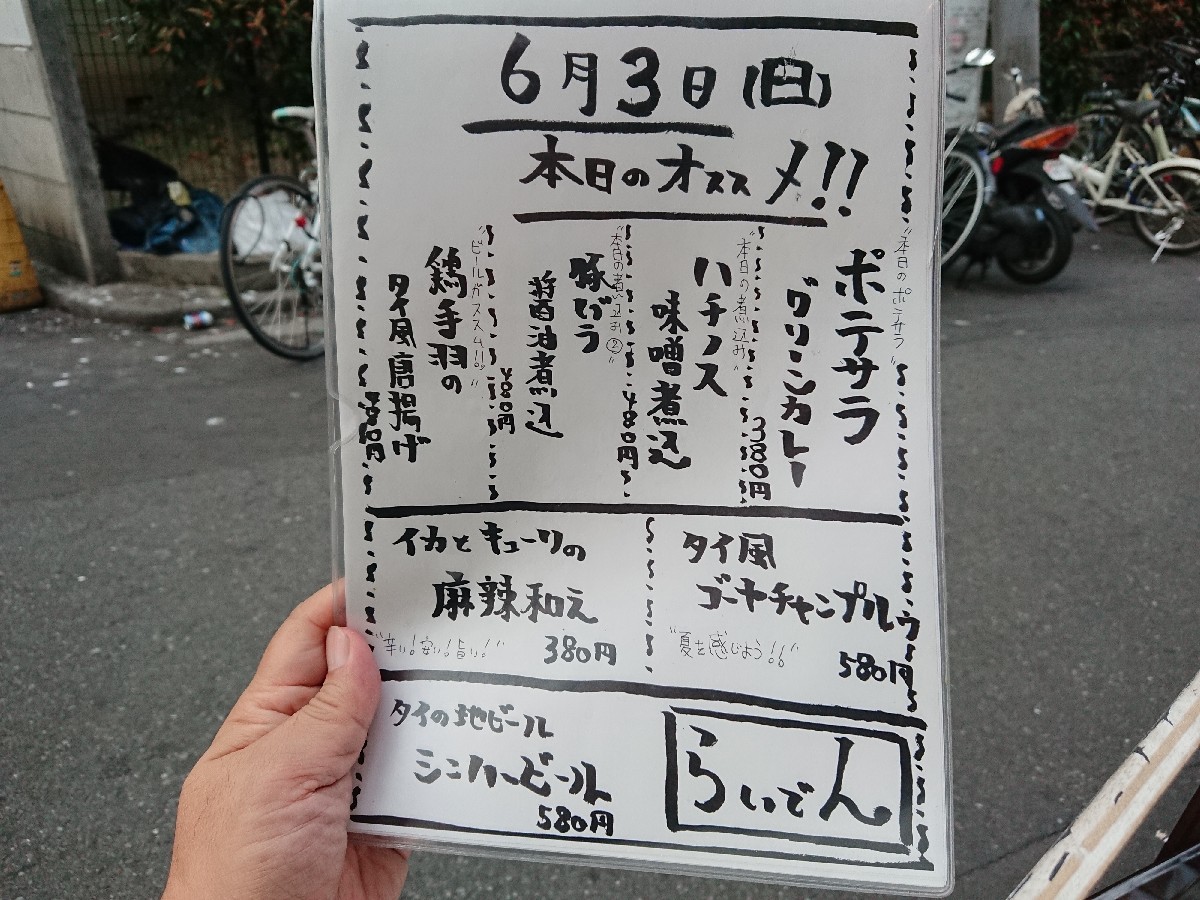 6月3日(日)
本日のオススメ!!
"本日のポテサラ"
ポテサラ
グリーンカレー
380円
"本日の煮込み"
ハチノス
味噌煮込
480円
"本日の煮込み②"
豚バラ
醤油煮込
480円
"ビールがススム!!"
鶏手羽の
タイ風唐揚げ
タイ風
ゴーヤチャンプルゥ
"夏を感じよう!!"
580円
イカとキューリの
麻辣和え
"辛い!安い!旨い!"
380円
タイの地ビール
シンハービール
580円
らいでん